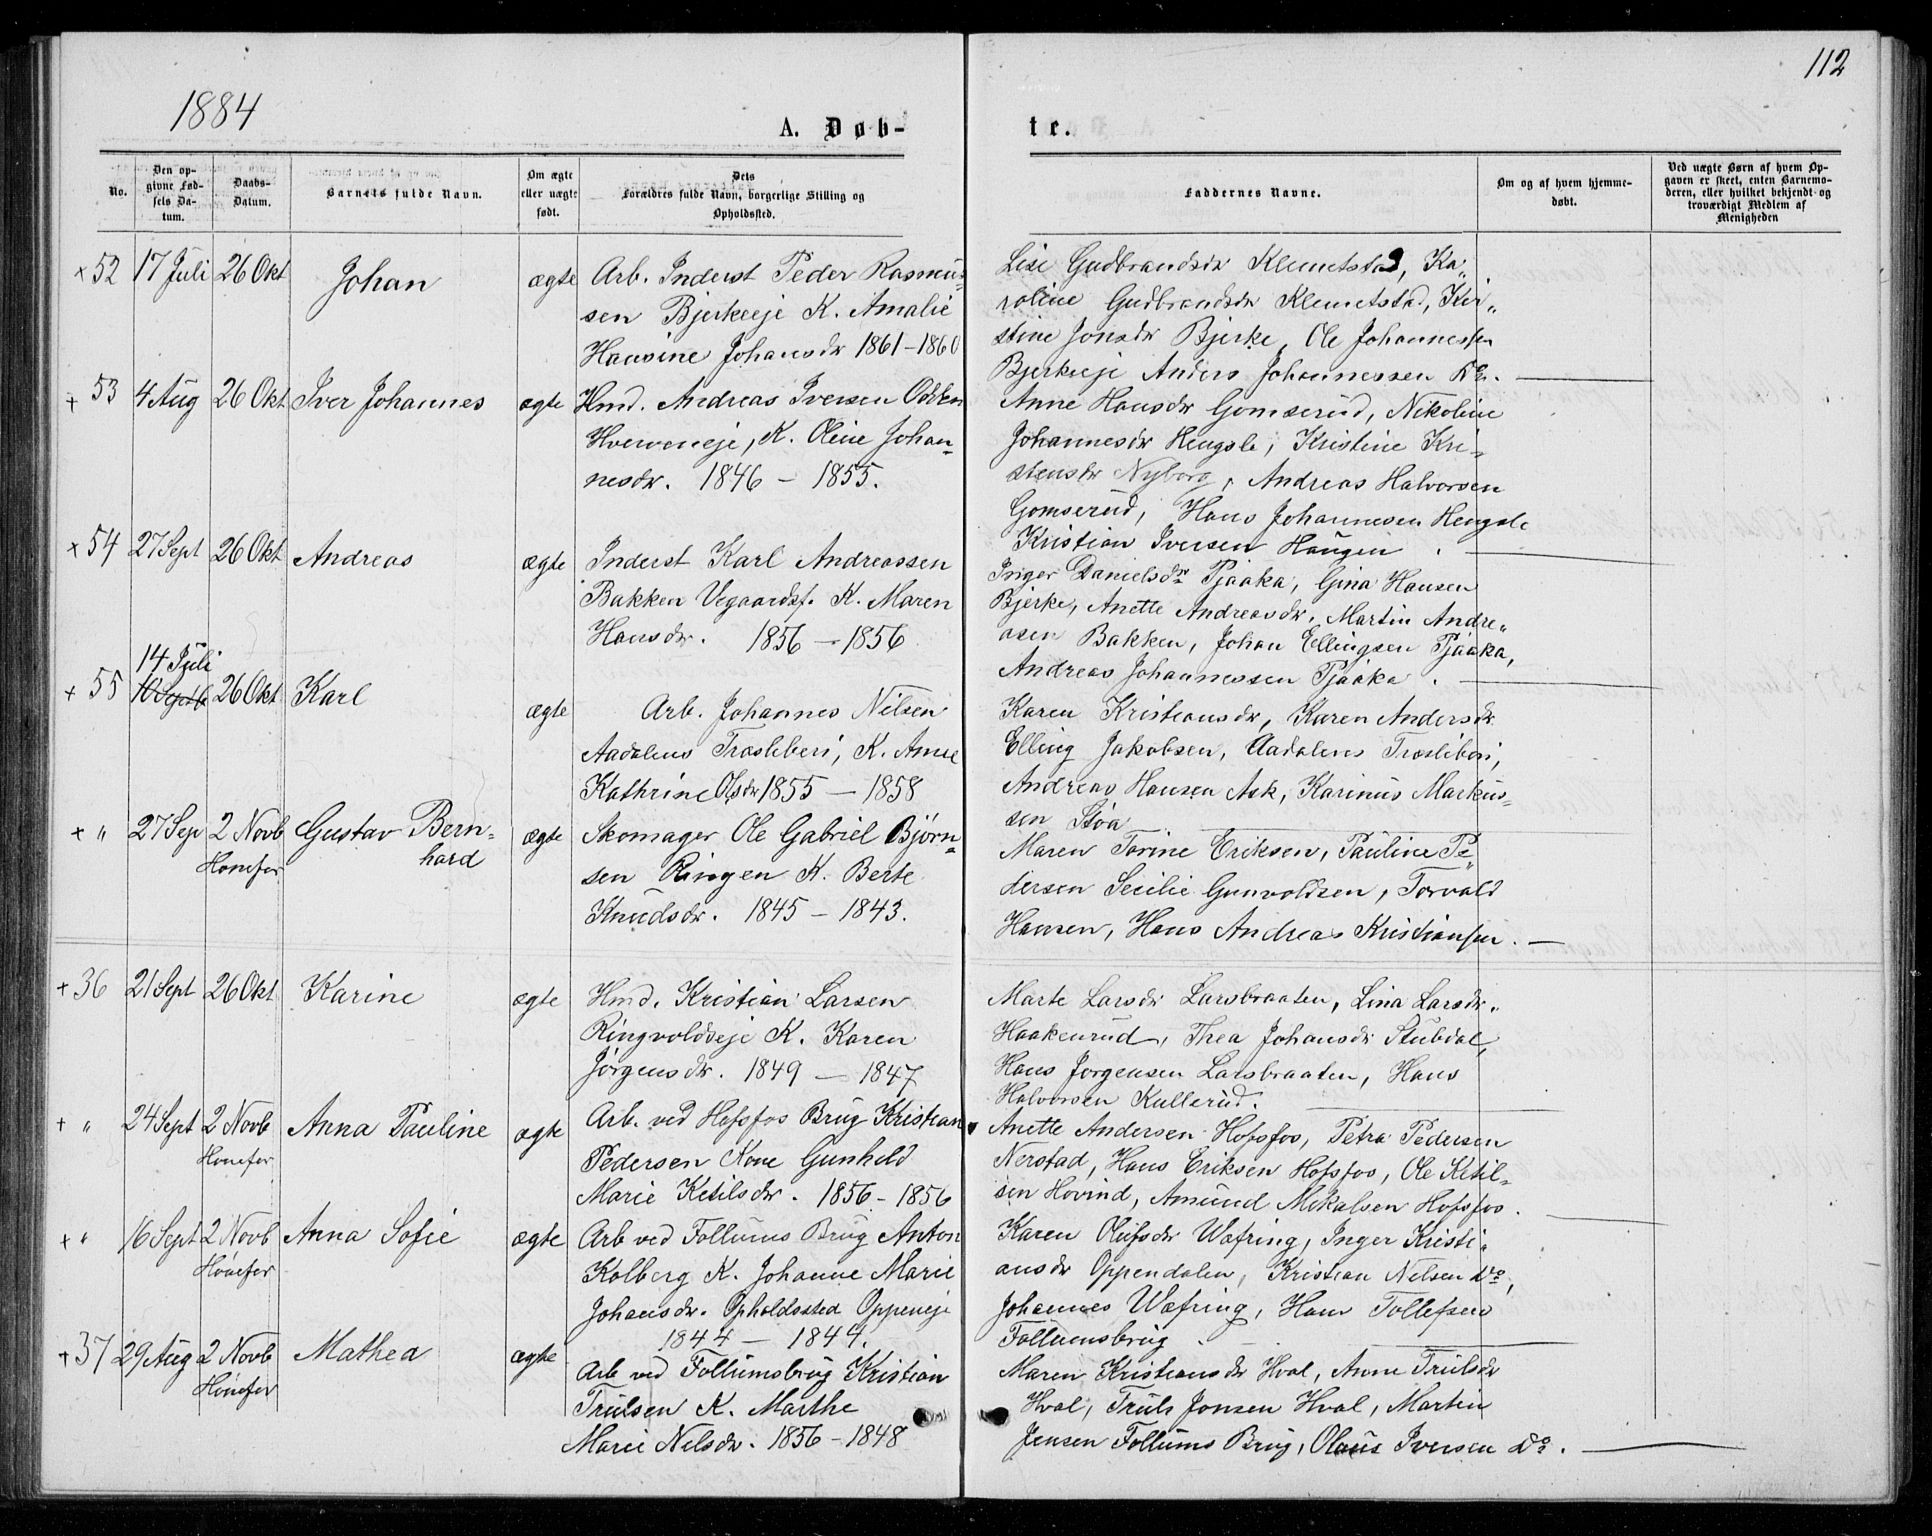 112
1884
A. Døb-
te.
No.
Den op-
givne Fød-
sels Da-
tum.
Daabs-
Datum.
Barnets fulde Navn.
Om ægte
eller uægte
født.
Dets
Forældres fulde Navn, borgerlige Stilling og
Opholdssted.
Faddernes Navne.
Om og af hvem hjemme-
døbt.
Ved uægte Børn af hvem Op-
gaven er skeet, enten Barnemo-
deren, eller hvilket bekjendt og
troværdigt Medlem af
Menigheden
+ 52 17 Juli 26 Okt Johan ægte
Arb. Inderst Peder Rasmus-
sen Bjerkeeje K. Amalie
Hansine Johansdr 1861 - 1860
Lise Gudbrandsdr Klemetstad, Ka-
roline Gudbrandsdr Klemetstad, Kri-
stine Jonsdr Bjerke, Ole Johannessen
Bjerkeeje Anders Johannessen Do.
+ 53 4 Aug 26 Okt Iver Johannes ægte
Hmd. Andreas Iversen Odden
Hverveneje, K. Oline Johan-
nesdr. 1846 - 1855.
Anne Hansdr Gomserud, Nikoline
Johannesdr Hengsle, Kristine Kri-
stensdr Nyborg, Andreas Halvorsen
Gomserud, Hans Johannesen Hengsle
Kristian Iversen Haugen.
+ 54 27 Sept 26 Okt Andreas ægte
Inderst Karl Andreassen
Bakken Vegaardsf. K. Maren
Hansdr. 1856 - 1856
Inger Danielsdr Tjaaka, Gina Hansen
Bjerke, Anette Andreasdr, Martin Andre-
asen Bakken, Johan Ellingsen Tjaaka,
Andreas Johannessen Tjaaka.
14 Juli
+ 55 10 Septb 26 Okt Karl ægte
Arb. Johannes Nilsen
Aadalens Træsliberi, K. Anne
Kathrine Olsdr 1855 - 1858
Karen Kristiansdr, Karen Andersdr
Elling Jakobsen, Aadalens Træsliberi,
Andreas Hansen Ask, Karinus Markus-
sen Støa
+ " 27 Sep 2 Novb Gustav Bern-
Hønefos hard ægte
Skomager Ole Gabriel Bjørn-
sen Ringen K. Berte
Knudsdr. 1845 - 1843.
Maren Torine Eriksen, Pauline Pe-
dersen Secilie Gunvoldsen, Torvald
Hansen, Hans Andreas Kristiansen.
+ 36 21 Sept 26 Okt Karine ægte
Hmd. Kristian Larsen
Ringvoldseje K. Karen
Jørgensdr. 1849 - 1847
Marte Larsdr Larsbraaten, Lina Larsdr.
Haakenrud, Thea Johansdr Stubdal,
Hans Jørgensen Larsbraaten, Hans
Halvorsen Kullerud.
+ " 24 Sept 2 Novb Anna Pauline ægte
Hønefos
Arb. ved Hofsfos Brug Kristian
Pedersen Kone Gunhild
Marie Ketilsdr. 1856 - 1856
Anette Andersen Hofsfos, Petra Pedersen
Nerstad, Hans Eriksen Hofsfos, Ole Ketil-
sen Hovind, Amund Mikalsen Hofsfos.
+ " 16 Sept 2 Novb Anna Sofie ægte
Hønefos
Arb ved Follums Brug Anton
Kolberg K. Johanne Marie
Johansdr. Opholdssted Oppeneje
1844 - 1844.
Karen Olufsdr Wæfring, Inger Kristi-
ansdr Oppendalen, Kristian Nelsen Do,
Johannes Wæfring, Hans Tollefsen
Follumsbrug.
+ 37 29 Aug 2 Novb Mathea ægte
Hønefos
Arb ved Follumsbrug Kristian
Trulsen K. Marthe
Marie Nelsdr. 1856 - 1848
Maren Kristiansdr Hval, Anne Trulsdr
Hval, Truls Jonsen Hval, Martin
Jensen Follums Brug, Olaus Iversen Do.